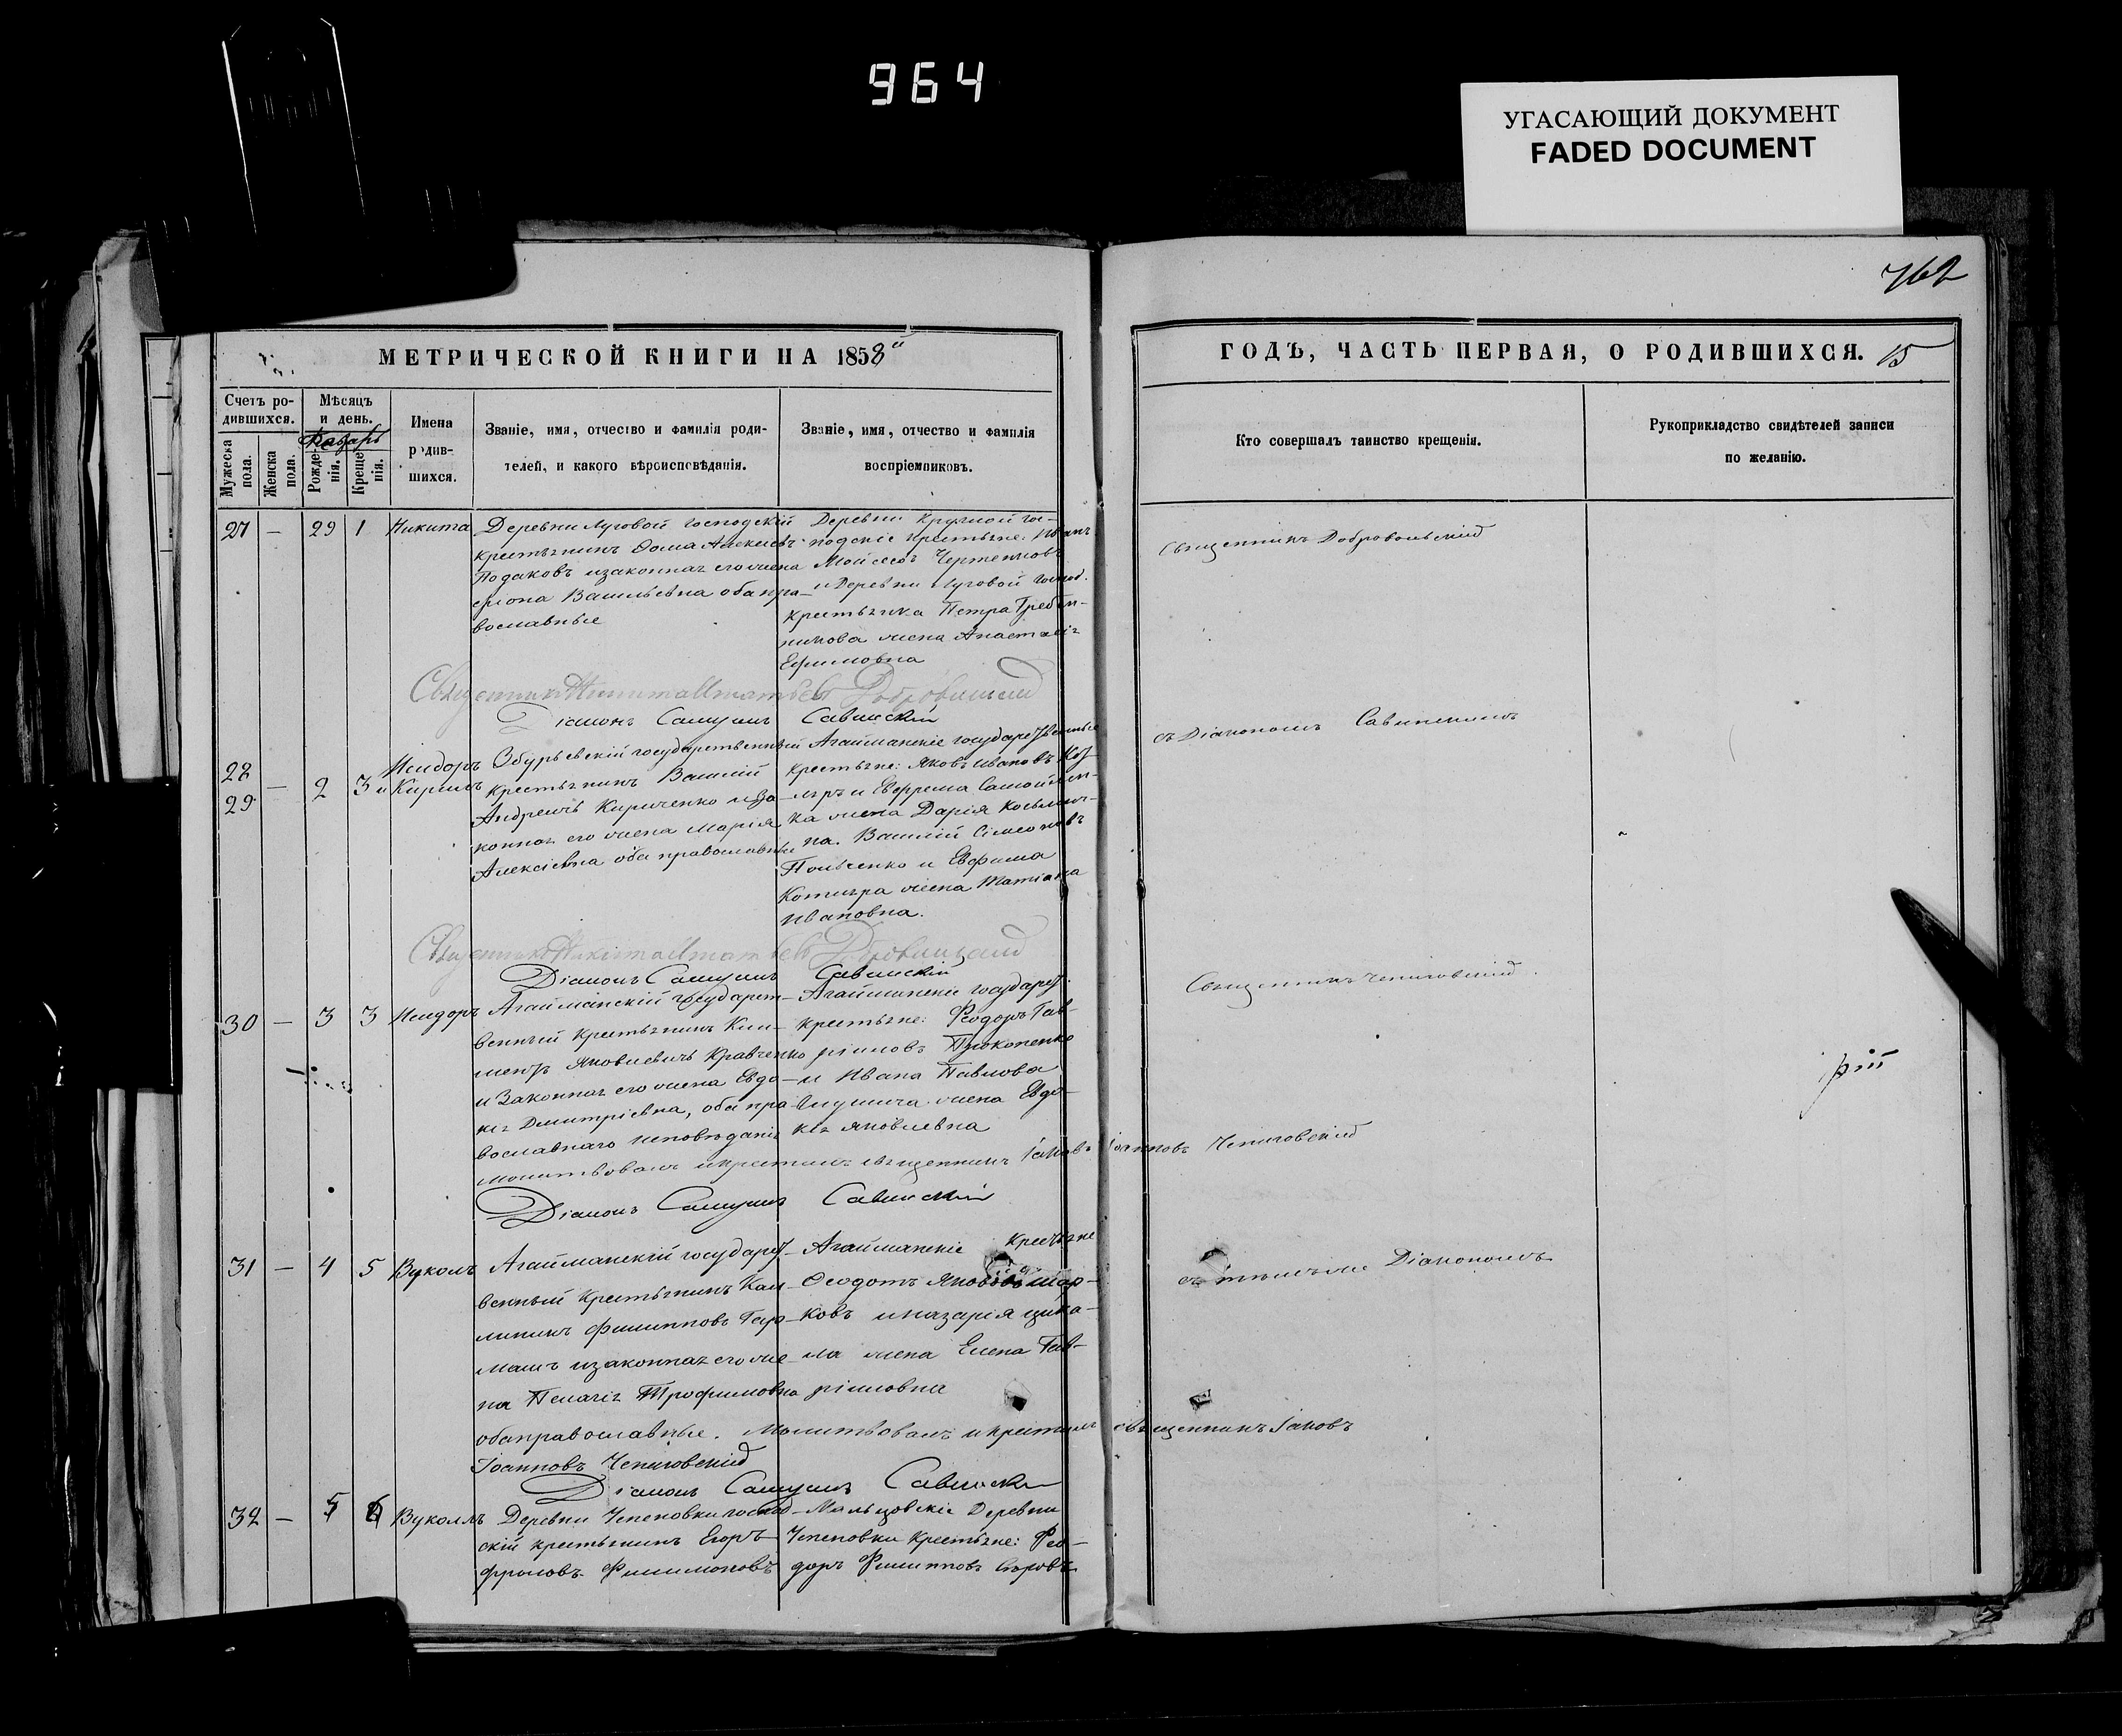 964
УГАСАЮЩИЙ ДОКУМЕНТ
FADED DOCUMENT
762
МЕТРИЧЕСКОЙ КНИГИ НА 1858й
ГОДЪ, ЧАСТЬ ПЕРВАЯ, О РОДИВШИХСЯ. 15
Счетъ ро-
дившихся.
Мужеска пола.
Женска пола.
Мѣсяцъ
и день.
Рожде-
нія.
Креще-
нія.
Имена
родив-
шихся.
Званіе, имя, отчество и фамилія роди-
телей, и какого вѣроисповѣданія.
Званіе, имя, отчество и фамилія
воспріемниковъ.
Кто совершалъ таинство крещенія.
Рукоприкладство свидѣтелей записи
по желанію.
27 — 29 1 Никита
Деревни Луговой господскій
крестьянинъ Фома Алексѣевъ
изаконная его жена
Васильевна оба пра-
вославные
Деревни Крупной го-
подскіе крестьяне: Иванъ
Моисеевъ
и Деревни Луговой господ.
крестьянка Петра Гребен-
никова жена Анастасія
Ефимовна
Священникъ Добровольскій
Священникъ Никита Матвеевъ
Діаконъ Самуилъ Савинскій
28
29 — 2 3 Исидоръ
и Кирилъ
государственный
крестьянинъ Василій
Андреевъ Кириченко и за-
конная его жена Марія
Алексіевна оба православные
Агайманскіе государственные
крестьяне: Яковъ Ивановъ
и Ефрема Самойлен-
ка жена Дарія Косьмин-
на. Василій Сімеоновъ
и Евфима
жена Татіана
Ивановна.
съ Діакономъ Савинскимъ
Священникъ Никита Матвеевъ
Діаконъ Самуилъ Савинскій
30 — 3 3 Исидоръ
Агайманскій государст-
венный Крестьянинъ Кли-
ментъ Яковлевичъ Кравченко
и Законная его жена Евдо-
кія Дмитріевна, оба пра-
вославнаго исповѣданія
Агайманскіе государст.
крестьяне: Феодоръ Гав-
ріиловъ Прокопенко
и Ивана Павлова
жена Евдо-
кія Яковлевна
Священникъ Чепиговскій
молитвовалъ и крестилъ священникъ Іаковъ Іоанновъ Чепиговскій
Діаконъ Самуилъ Савинскій
31 — 4 5 Вуколъ
Агайманскій государст-
венный Крестьянинъ Кал-
линикъ Филипповъ Гер-
манъ изаконная его же-
на Пелагія Трофимовна
оба православные. Молитвовалъ и крестилъ священникъ Іаковъ
Іоанновъ Чепиговскій
Агайманскіе Крестьяне
Феодотъ Яковлевъ
иназарія
жена Елена Гав-
ріиловна
Діакономъ
Діаконъ Самуилъ Савинскій
32 — 5 6 Вуколъ
Деревни Чепеновки господ-
скій крестьянинъ Егоръ
Фроловъ Филимоновъ
Мальцовскіе Деревни
Чепеновки Крестьяне: Фео-
доръ Филипповъ